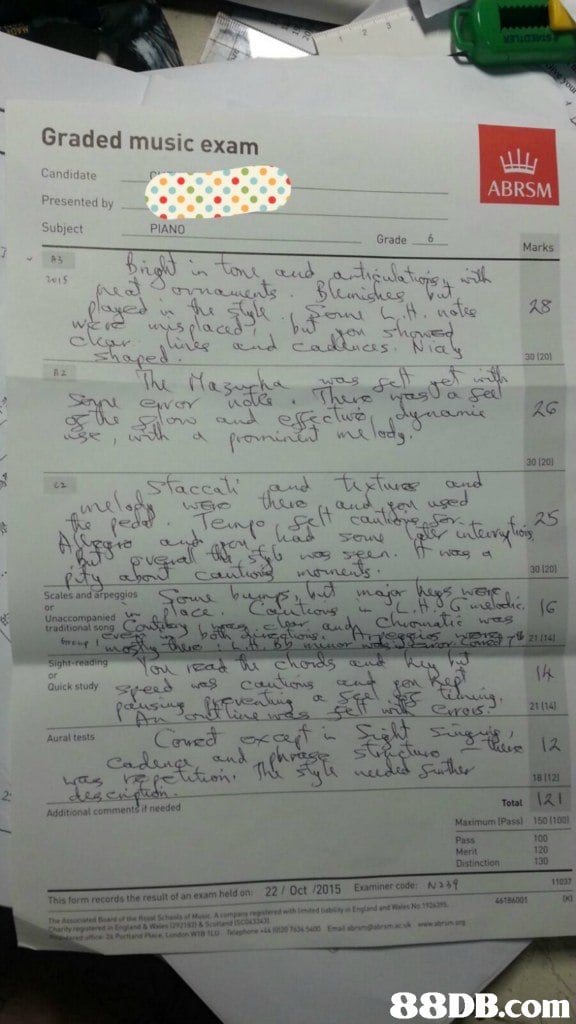 Graded music exam
ABRSM
Candidate
Presented by
Subject PIANO
Grade 6
Marks
A3
2015
Bright in tone and articulation, with
neat ornaments. Blemishes, but
played in the style. Some L.H. notes
were misplaced, but you showed
clear lines and cadences. Nicely
shaped.
28
30 (20)
B2
The Mazurka was felt yet with
some error notes. There was a feel
of the slow and effective dynamic
use, with a prominent melody.
26
30 (20)
C2
Staccati and textures and
melody were there and you used
the pedal. Tempo felt cautious for
Allegro and you had some later interruptions
but overall the style was seen. It was a
pity about cautious moments.
25
30 (20)
Scales and arpeggios
or
Unaccompanied
traditional song
Some bumps, but major keys were
in place. Cautious in L.H. G melodic.
was clear and chromatic was
even in both directions. Arpeggios were
mostly there
16
21 (14)
Sight-reading
or
Quick study
You read the chords and key but
speed was cautious and you kept
pausing preventing a feel for timing.
An outline was felt with errors.
14
21 (14)
Aural tests
Correct except in sight singing,
cadence and phrase structure - there
was repetition. The style needed further
description.
12
18 (12)
Additional comments if needed
Total 121
Maximum (Pass) 150 (100)
Pass 100
Merit 120
Distinction 130
This form records the result of an exam held on: 22 / Oct /2015 Examiner code: N239
11037
46186001 (K)
The Associated Board of the Royal Schools of Music. A company registered with limited liability in England and Wales No. 1926395.
Charity registered in England & Wales (292182) & Scotland (SC043343)
Registered office: 24 Portland Place, London W1B 1LU Telephone +44 (0)20 7636 5400 Email abrsm@abrsm.ac.uk www.abrsm.org
88DB.com